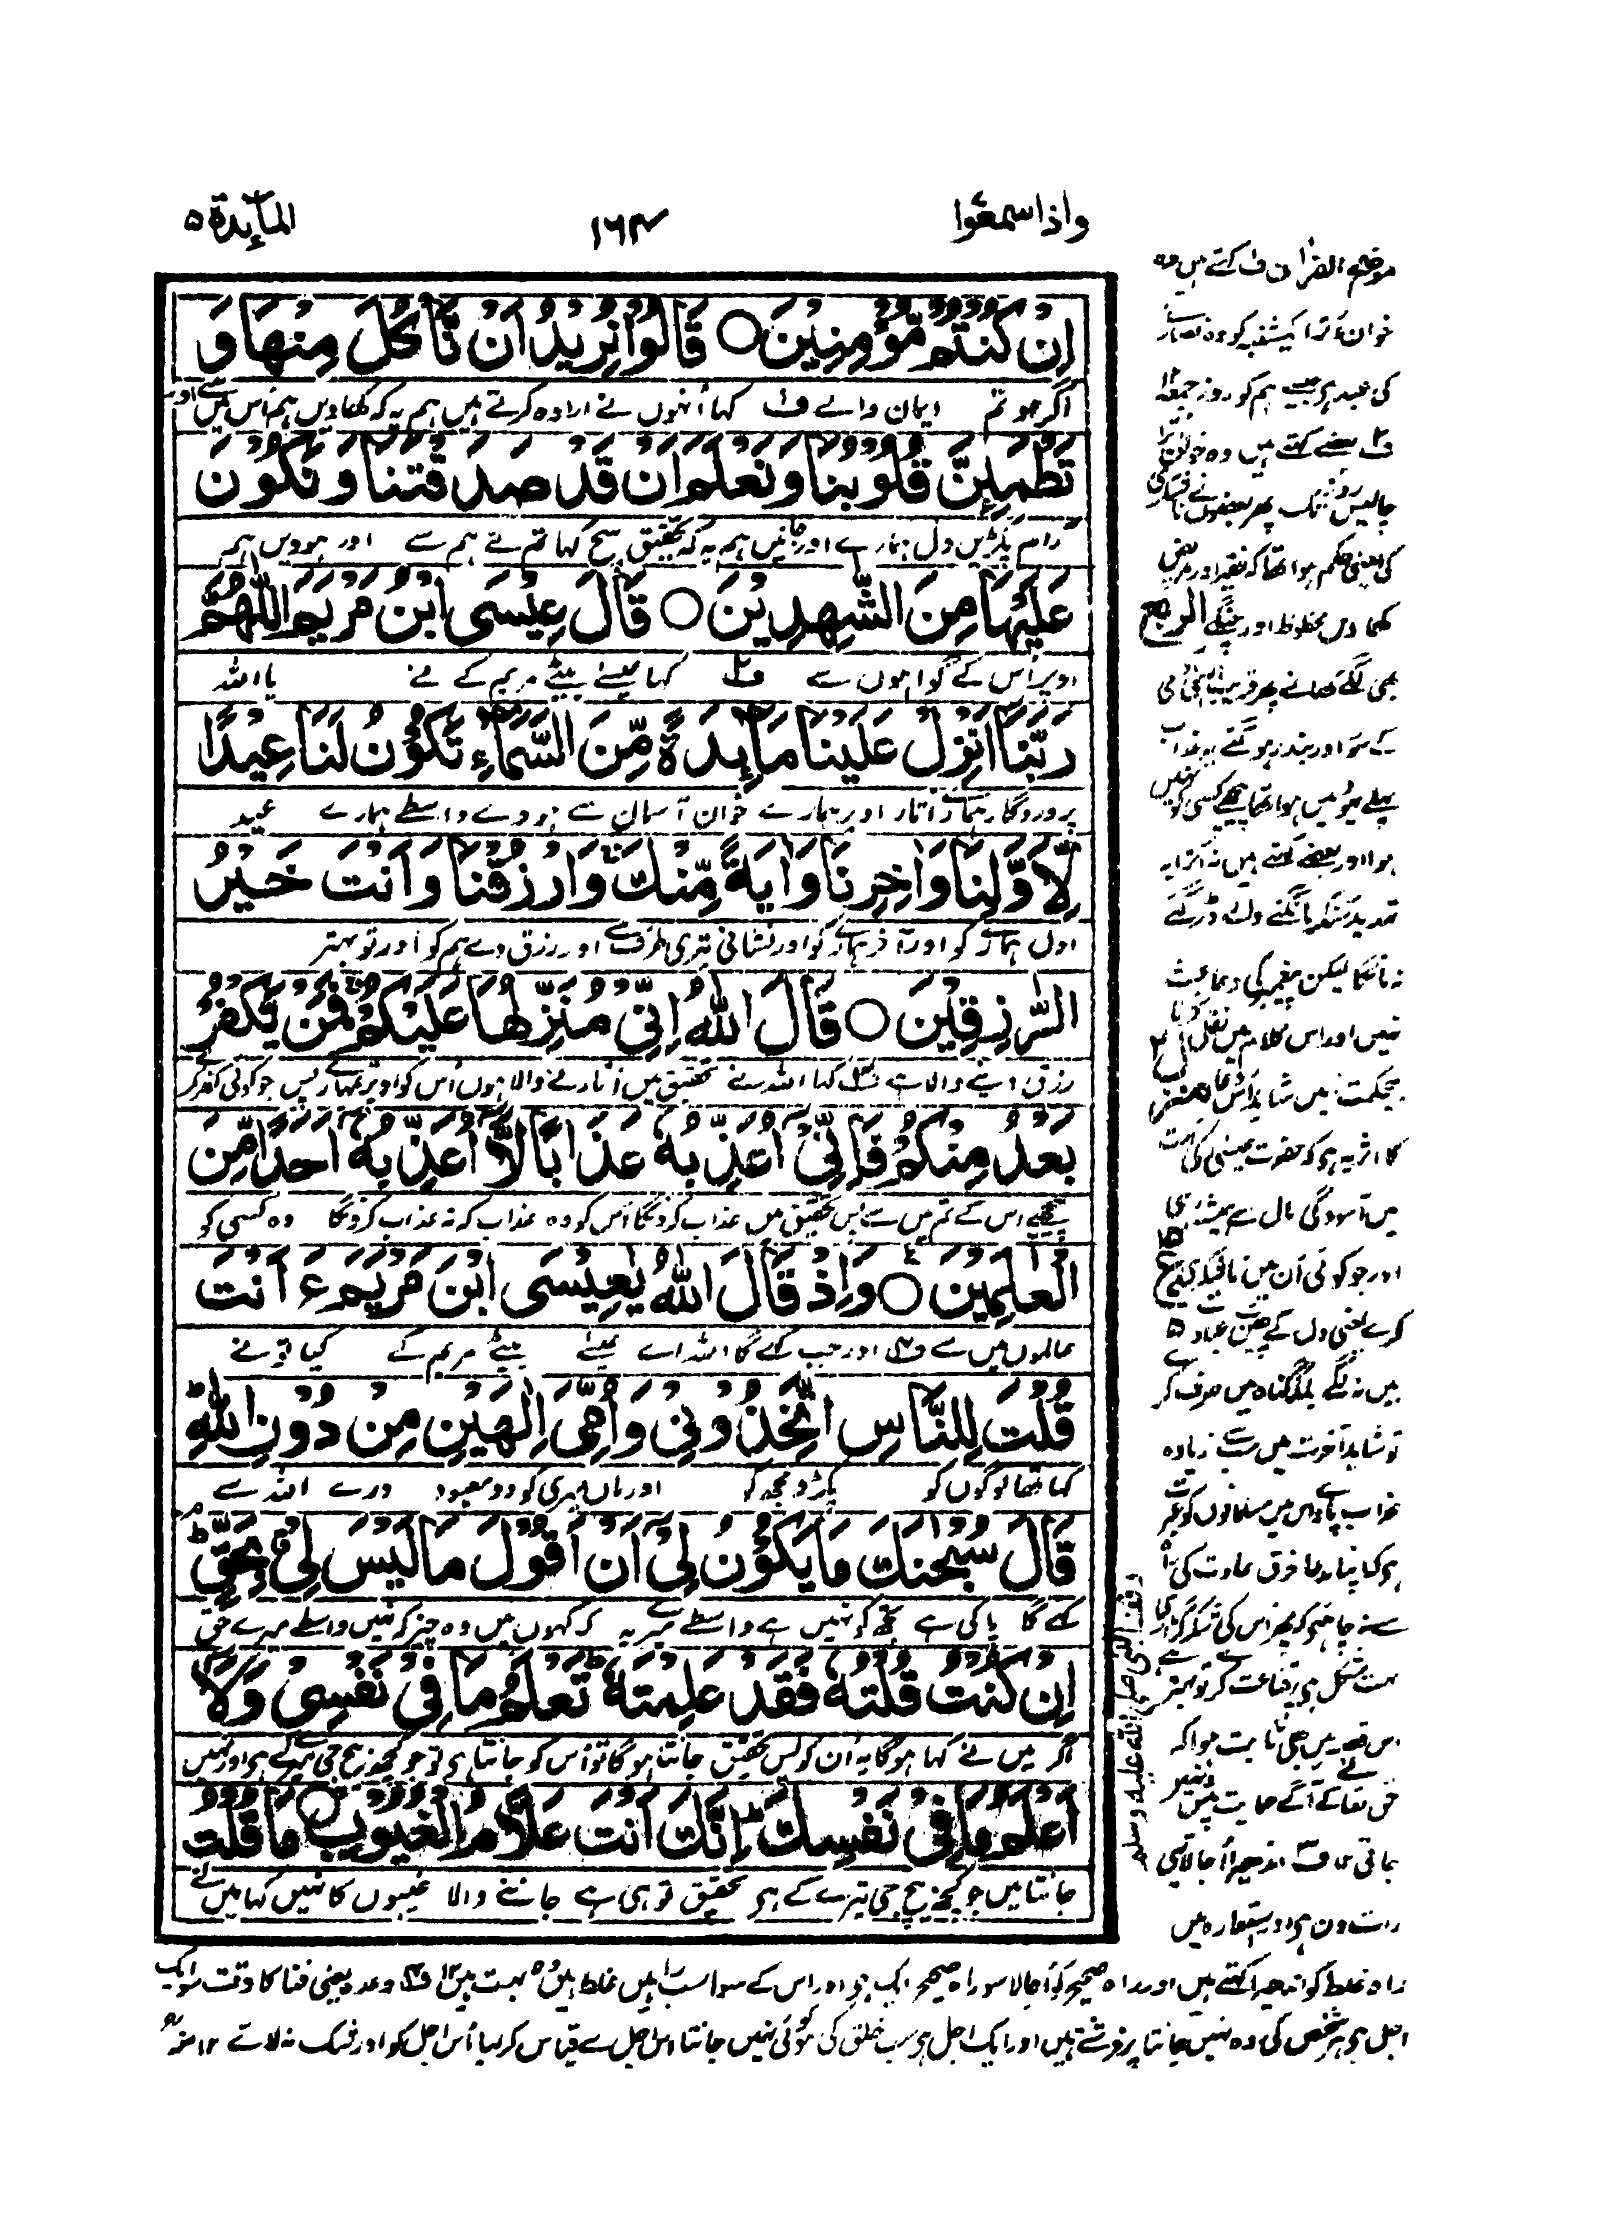 واذاسمعوا
۱۶۴
المآىِٕدة ۵
اِنْ كُنْتُمْ مُّؤْمِنِيْنَ ○ قَالُوْا نُرِيْدُ اَنْ نَّاْكُلَ مِنْهَا وَ
اگر ہو تم ایمان والے ف کہا اُنہوں نے ارادہ کرتے ہیں ہم یہ کہ کھاویں ہم اس میں سے اور
تَطْمَىِٕنَّ قُلُوْبُنَا وَنَعْلَمَ اَنْ قَدْ صَدَقْتَنَا وَنَكُوْنَ
آرام پکڑیں دل ہمارے اور جانیں ہم یہ کہ تحقیق سچ کہا تم نے ہم سے اور ہوویں ہم
عَلَيْهَا مِنَ الشّٰهِدِيْنَ ○ قَالَ عِيْسَى ابْنُ مَرْيَمَ اللّٰهُمَّ
اوپر اُس کے گواہوں سے ف۲ کہا عیسے بیٹے مریم کے نے یا اللہ
رَبَّنَا اَنْزِلْ عَلَيْنَا مَآىِٕدَةً مِّنَ السَّمَآءِ تَكُوْنُ لَنَا عِيْدًا
پروردگار ہمارے اتار اوپر ہمارے خوان آسمان سے ہووے واسطے ہمارے عید
لِّاَوَّلِنَا وَاٰخِرِنَا وَاٰيَةً مِّنْكَ وَارْزُقْنَا وَاَنْتَ خَيْرُ
اول ہمارے کو اور آخر ہمارے کو اور نشانی تیری طرف سے اور رزق دے ہم کو اور تو بہتر
الرّٰزِقِيْنَ ○ قَالَ اللّٰهُ اِنِّيْ مُنَزِّلُهَا عَلَيْكُمْ فَمَنْ يَّكْفُرْ
رزق دینے والا ہے ف کہا اللہ نے تحقیق میں اُتارنے والا ہوں اُس کو اوپر تمہارے پس جو کوئی کفر کرے
بَعْدُ مِنْكُمْ فَاِنِّيْٓ اُعَذِّبُهٗ عَذَابًا لَّآ اُعَذِّبُهٗٓ اَحَدًا مِّنَ
پیچھے اس کے تم میں سے پس تحقیق میں عذاب کرونگا اُس کو وہ عذاب کہ نہ عذاب کرونگا وہ کسی کو
الْعٰلَمِيْنَ ○ وَاِذْ قَالَ اللّٰهُ يٰعِيْسَى ابْنَ مَرْيَمَ ءَاَنْتَ
عالموں میں سے ف۴ اور جب کہے گا اللہ اے عیسے بیٹے مریم کے کیا تو نے
قُلْتَ لِلنَّاسِ اتَّخِذُوْنِيْ وَاُمِّيَ اِلٰهَيْنِ مِنْ دُوْنِ اللّٰهِ
کہا تھا لوگوں کو پکڑو مجھ کو اور ماں میری کو دو معبود ورے اللہ سے
قَالَ سُبْحٰنَكَ مَا يَكُوْنُ لِيْٓ اَنْ اَقُوْلَ مَا لَيْسَ لِيْ بِحَقٍّ
کہے گا پاکی ہے تجھ کو نہیں ہے واسطے میرے یہ کہ کہوں میں وہ چیز کہ نہیں واسطے میرے حق
اِنْ كُنْتُ قُلْتُهٗ فَقَدْ عَلِمْتَهٗ تَعْلَمُ مَا فِيْ نَفْسِيْ وَلَآ
اگر میں نے کہا ہوگا یہ اُن کو پس تحقیق جانتا ہوگا تو اُس کو جانتا ہی تو جو کچھ بیچ جی میرے کے ہی اور نہیں
اَعْلَمُ مَا فِيْ نَفْسِكَ اِنَّكَ اَنْتَ عَلَّامُ الْغُيُوْبِ ○ مَا قُلْتُ
جانتا میں جو کچھ بیچ جی تیرے کے ہی تحقیق تو ہی ہے جاننے والا غیبوں کا نہیں کہا میں نے
موضح القرآن ف کہتے ہیں وہ
خوان اُترا یکشنبہ کو وہ نصارے
کی عید ہی جیسے ہم کو روز جمعہ
ف۲ بعضے کہتے ہیں وہ خوان اُترا
چالیس روز تک پھر بعضوں نے ناشکری
کی یعنی حکم ہوا تھا کہ فقیر اور مریض
کھاویں محظوظ اور چنگے
بھی لگے کھانے پھر قریب اسّی آدمی
کے سور اور بندر ہو گئے یہ عذاب
پہلے یہود میں ہوا تھا پیچھے کسی کو نہیں
ہوا اور بعضے کہتے ہیں نہ اُترا یہ
تہدید سنکر مانگنے والے ڈر گئے
نہ مانگا لیکن پیغمبر کی دعا عبث
نہیں اور اس کلام میں نقل کرنا
بے حکمت نہیں شاید اُس دعا
کا اثر یہ ہو کہ حضرت عیسیٰ کی اُمت
میں آسودگی مال سے ہمیشہ رہی
اور جو کوئی اُن میں ناشکری
کرے یعنی دل کے چین سے عبادت
میں نہ لگے بلکہ گناہ میں صرف کرے
تو شاید آخرت میں سب سے زیادہ
عذاب پاوے اس میں مسلمانوں کو عبرت
ہی کہ اپنا مدعا خرق عادت کی راہ
سے نہ چاہے کہ پھر اس کی شکر گزاری
بہت مشکل ہی قناعت کرے تو بہتر ہے
اس قصہ میں بھی ثابت ہوا کہ
حق تعالے کے آگے حمایت پیش نہیں
جاتی ف اندھیرا اُجالا یہی
رات دن ہی اور استعارہ میں
وقف النبی صلی اللہ علیہ وسلم
راہ غلط کو اندھیرا کہتے ہیں اور راہ صحیح کو اُجالا سو راہ صحیح ایک ہی اور اس کے سوا سب راہیں غلط ہیں وہ بہت ہیں ۱۲ ف وعدہ یعنی فنا کا وقت سو ایک
اجل ہی ہر شخص کی وہ نہیں جانتا پر فرشتے ہیں اور ایک اجل ہی سب خلق کی کوئی نہیں جانتا اس اجل سے قیاس کر لیا اُس اجل کو اور شک نہ لاتے ۱۲ منہ